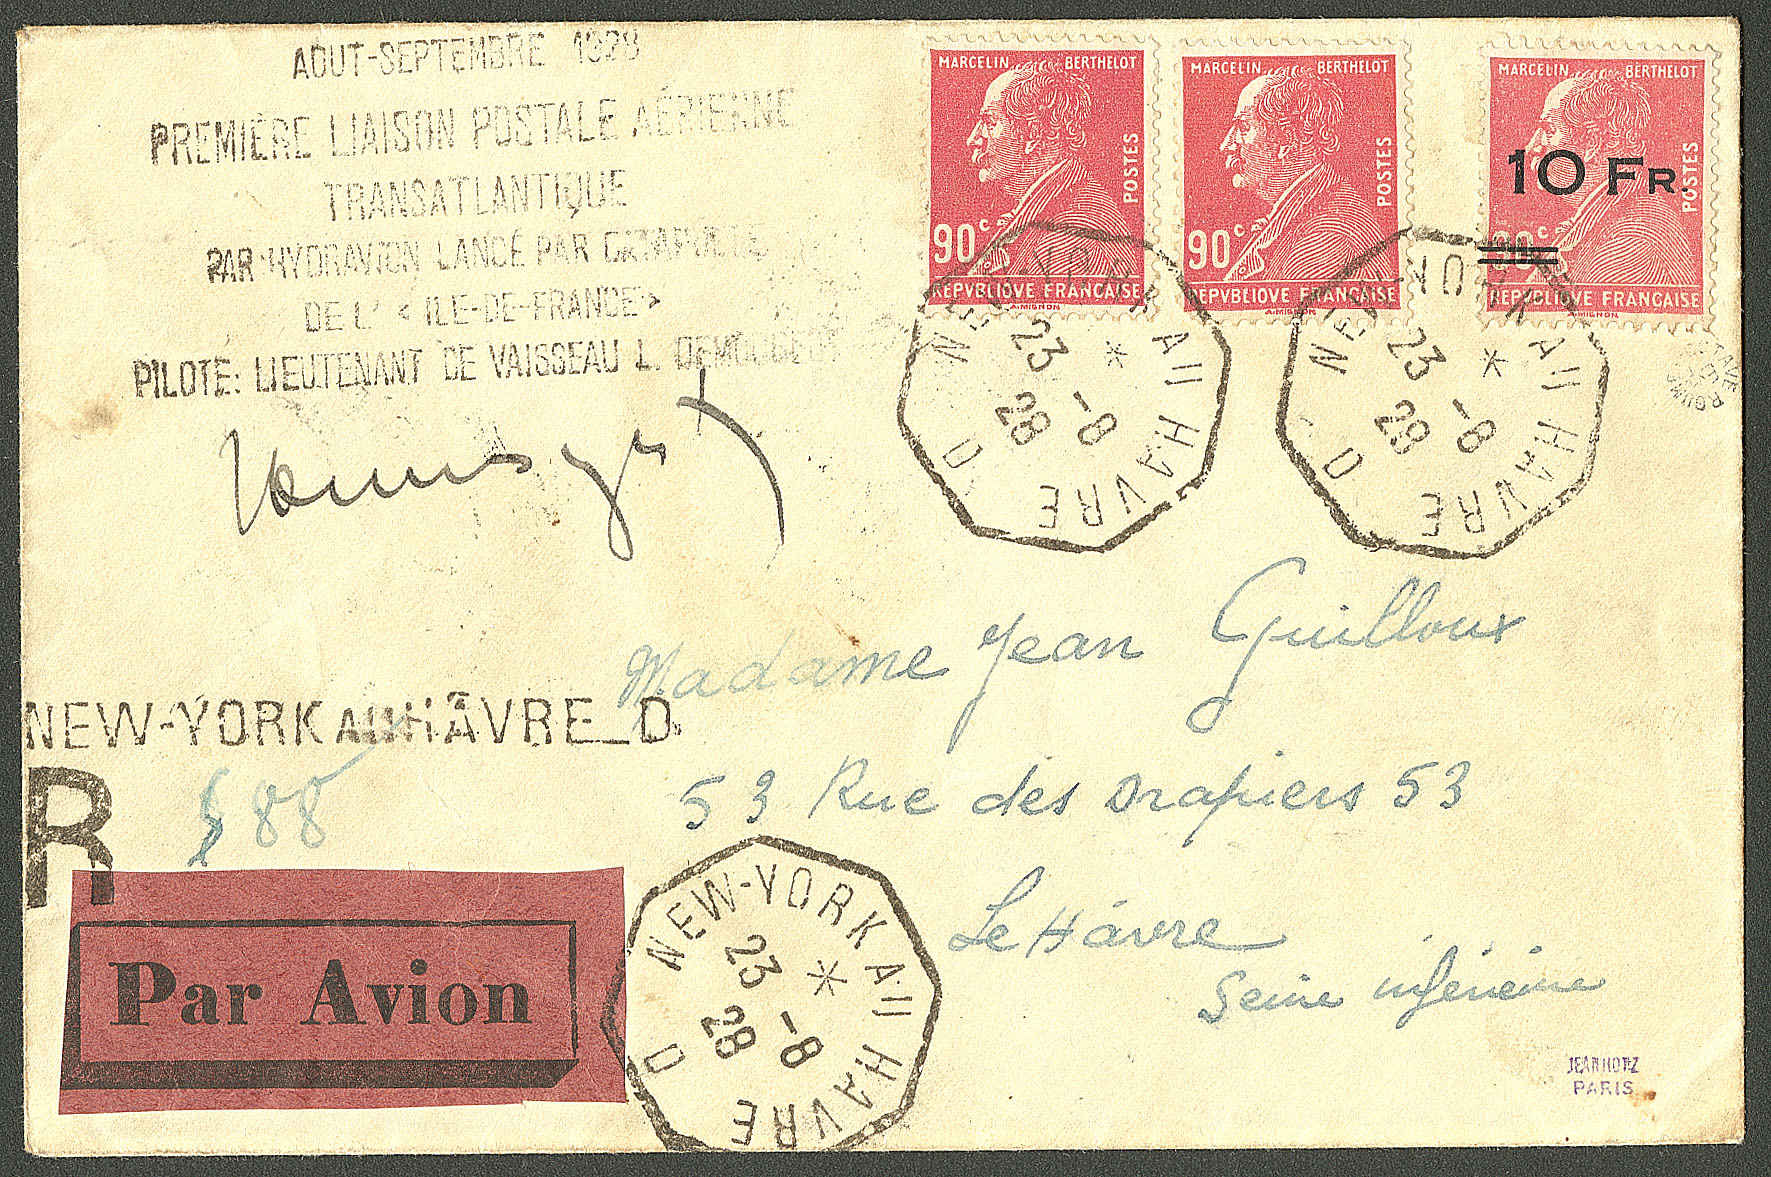 AOUT-SEPTEMBRE 1928
PREMIÈRE LIAISON POSTALE AÉRIENNE
TRANSATLANTIQUE
PAR HYDRAVION LANCÉ PAR CATAPULTE
DE L' « ILE-DE-FRANCE »
PILOTE: LIEUTENANT DE VAISSEAU L. DEMOUGEOT
MARCELIN BERTHELOT
POSTES
90c
REPVBLIQVE FRANÇAISE
A·MIGNON
MARCELIN BERTHELOT
POSTES
90c
REPVBLIQVE FRANÇAISE
A·MIGNON
MARCELIN BERTHELOT
POSTES
10 FR.
90c
REPVBLIQVE FRANÇAISE
A·MIGNON
NEW-YORK AU HAVRE D
23 -8
28
NEW-YORK AU HAVRE D
23 -8
28
Madame Jean Guilloux
53 Rue des Drapiers 53
Le Hâvre
Seine inférieure
NEW-YORK AU HÂVRE_D.
R
88
Par Avion
NEW-YORK AU HAVRE D
23 -8
28
JEAN HOTZ
PARIS